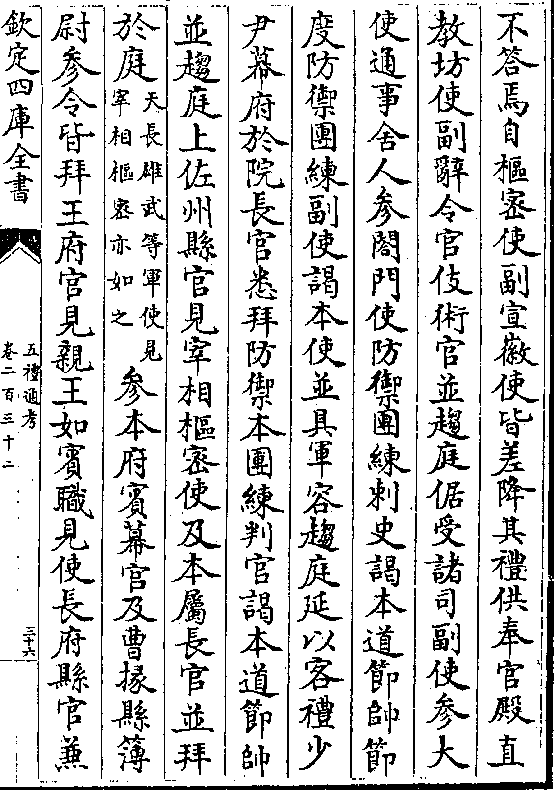 不答焉自樞密使副宣徽使皆差降其禮供奉官殿直
教坊使副辭令官伎術官並趨庭倨受諸司副使參大
使通事舍人參閤門使防禦團練刺史謁本道節帥節
度防禦團練副使謁本使並具軍容趨庭延以客禮少
尹幕府於院長官悉拜防禦本團練判官謁本道節帥
並趨庭上佐州縣官見宰相樞密使及本屬長官並拜
於庭天長雄武等軍使見宰相樞密亦如之參本府賓幕官及曹掾縣簿
尉參令皆拜王府官見親王如賓職見使長府縣官兼
欽定四庫全書
五禮通考
卷二百三十二
三十六